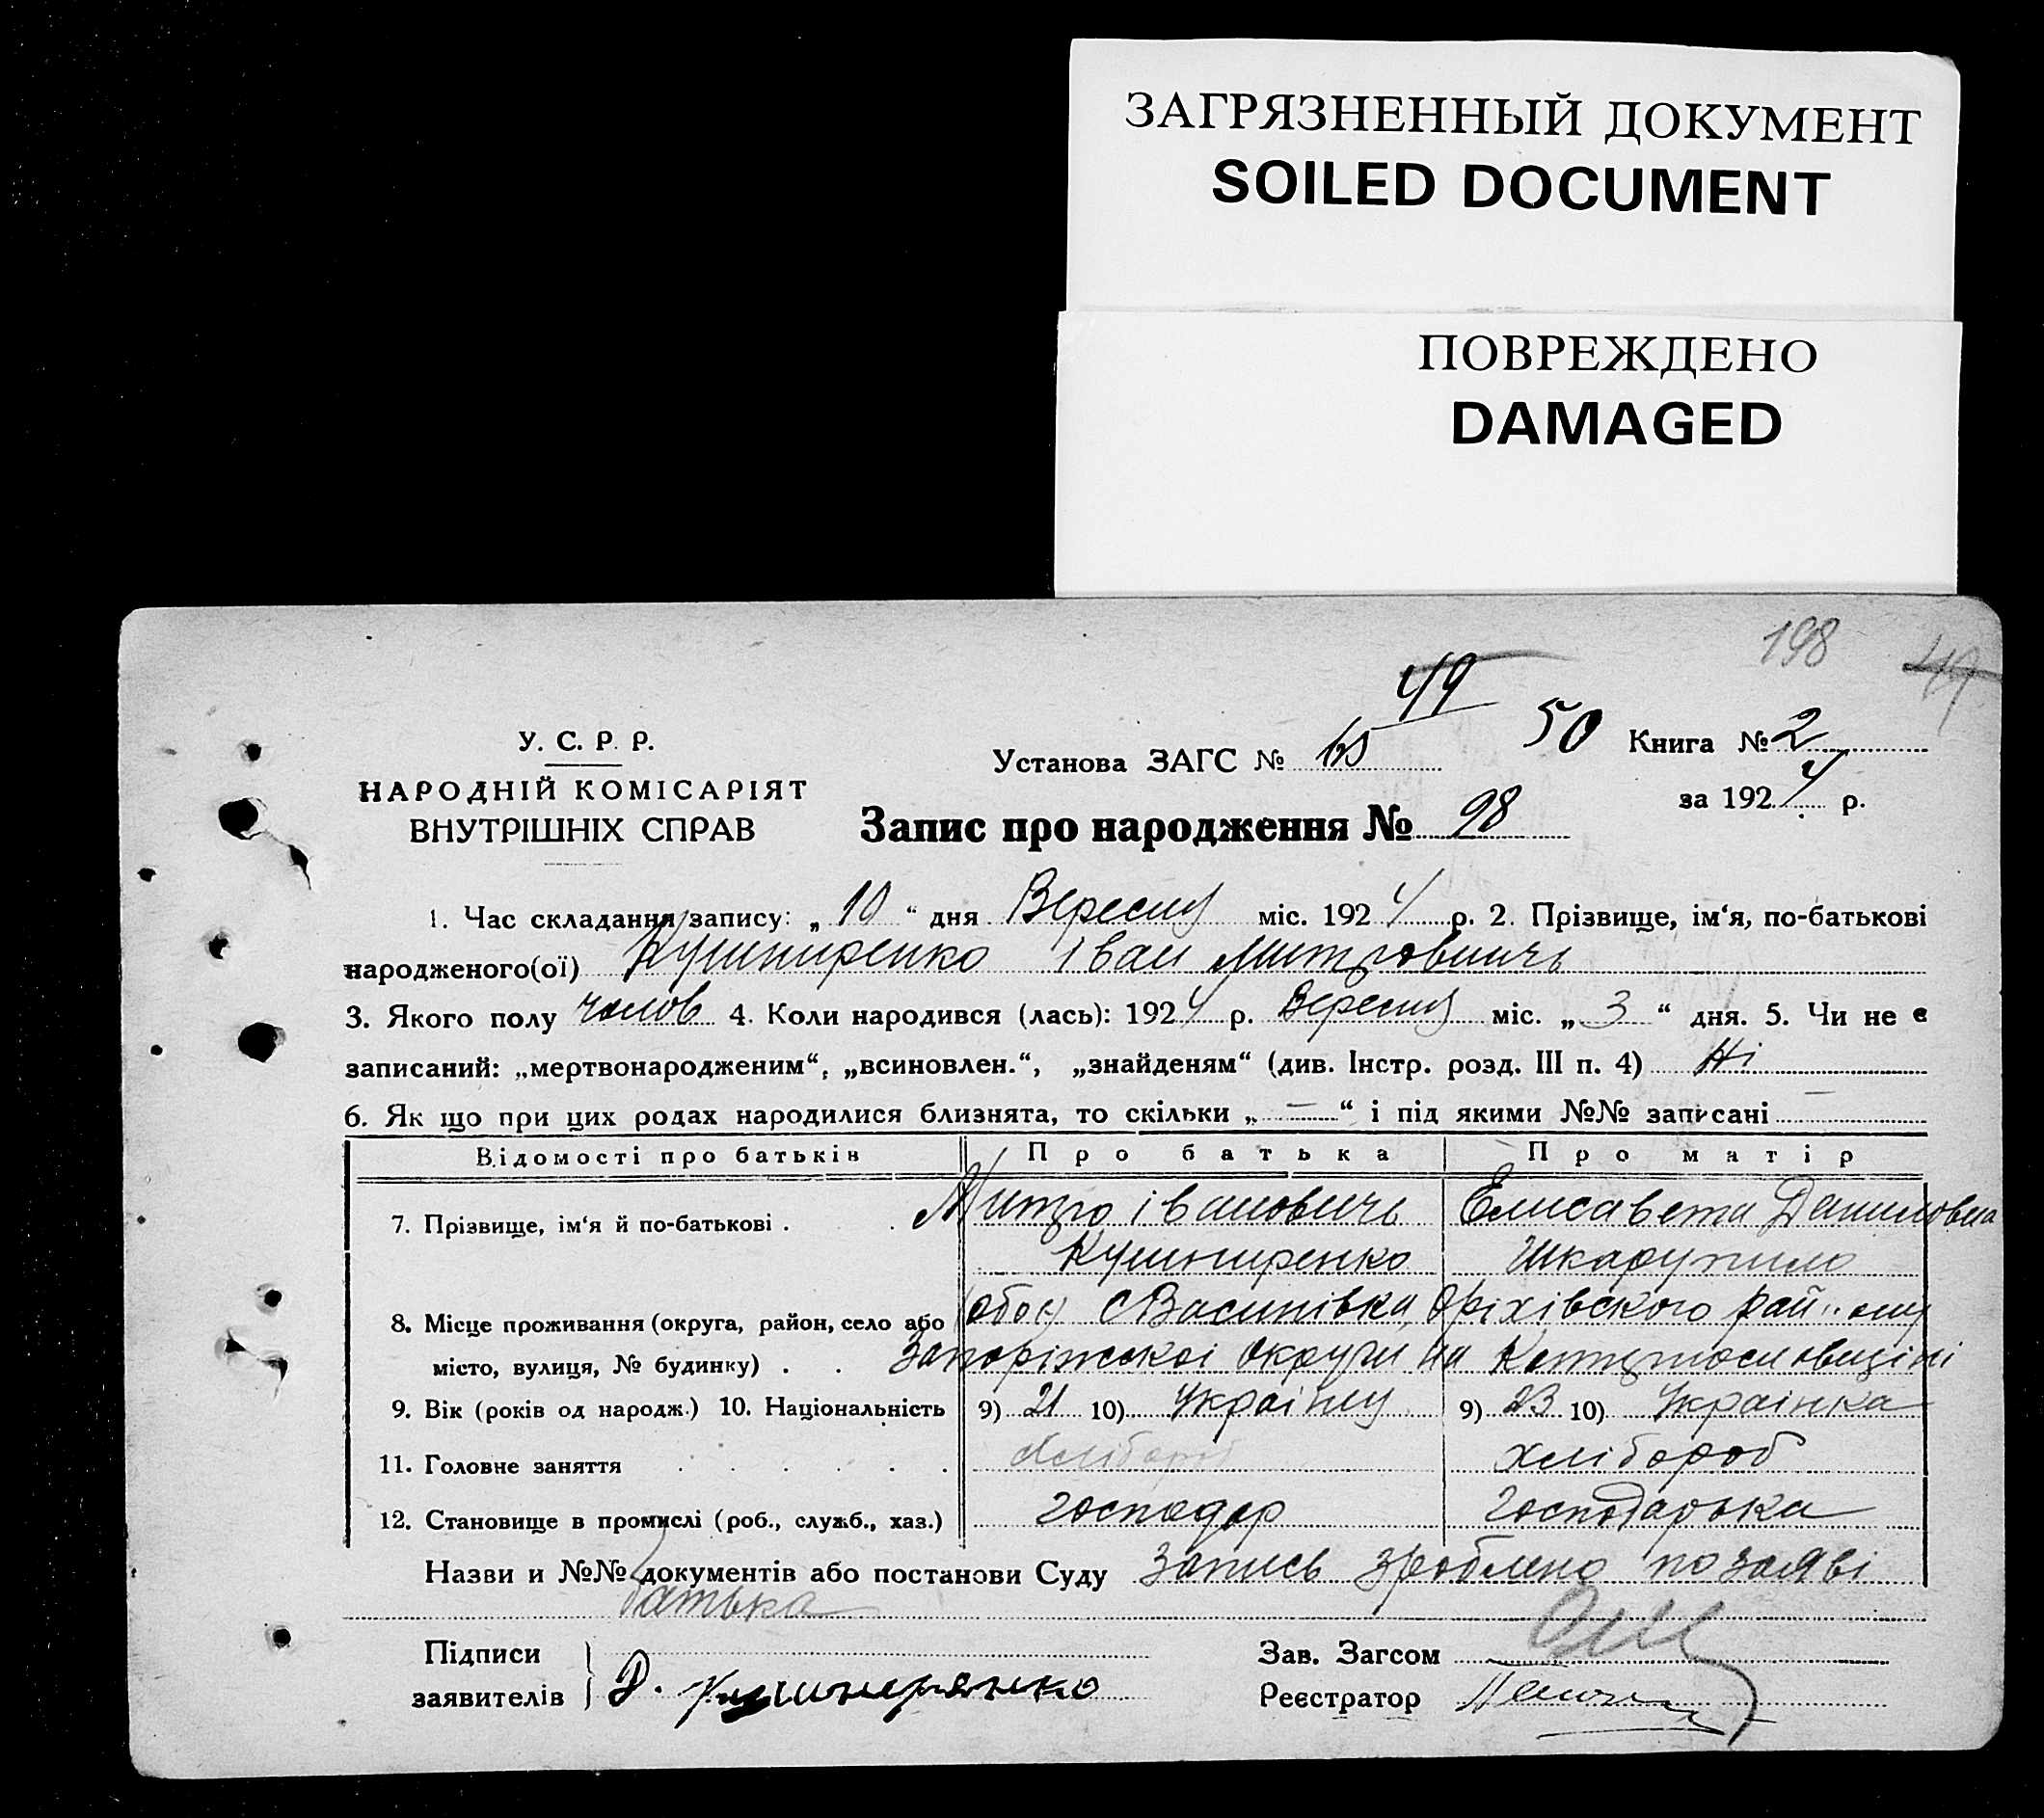 ЗАГРЯЗНЕННЫЙ ДОКУМЕНТ
SOILED DOCUMENT
ПОВРЕЖДЕНО
DAMAGED
198 49
49
У. С. Р. Р. Установа ЗАГС № 50 Книга № 2
НАРОДНІЙ КОМІСАРІЯТ за 1924 р.
ВНУТРІШНІХ СПРАВ Запис про народження № 98
1. Час складання запису: „ 10 “ дня Вересня міс. 1924 р. 2. Прізвище, ім‘я, по-батькові
народженого(ої) Кушниренко Іван Митровичь
3. Якого полу чолов 4. Коли народився (лась): 1924 р. Вересня міс. „ 3 “ дня. 5. Чи не є
записаний: „мертвонародженим“, „всиновлен.“, „знайденям“ (див. Інстр. розд. III п. 4) Ні
6. Як що при цих родах народилися близнята, то скільки „ — “ і під якими №№ записані —
Відомості про батьків Про батька Про матір
7. Прізвище, ім‘я й по-батькові . . Митро Івановичь Елисавета Даниловна
Кушниренко Шкарупило
8. Місце проживання (округа, район, село або (обоє) с Василівка, Оріхівського рай
місто, вулиця, № будинку) . . Запоріжскоі Округи на
9. Вік (років од народж.) 10. Національність 9) 21 10) Украінец 9) 23 10) Украінка
11. Головне заняття . . . . . . Хлібороб хлібороб
12. Становище в промислі (роб., служб., хаз.) господар господарька
Назви и №№ документів або постанови Суду Запись зроблено по заяві
батька
Підписи Зав. Загсом
заявителів Д. Кушнерянко Реєстратор